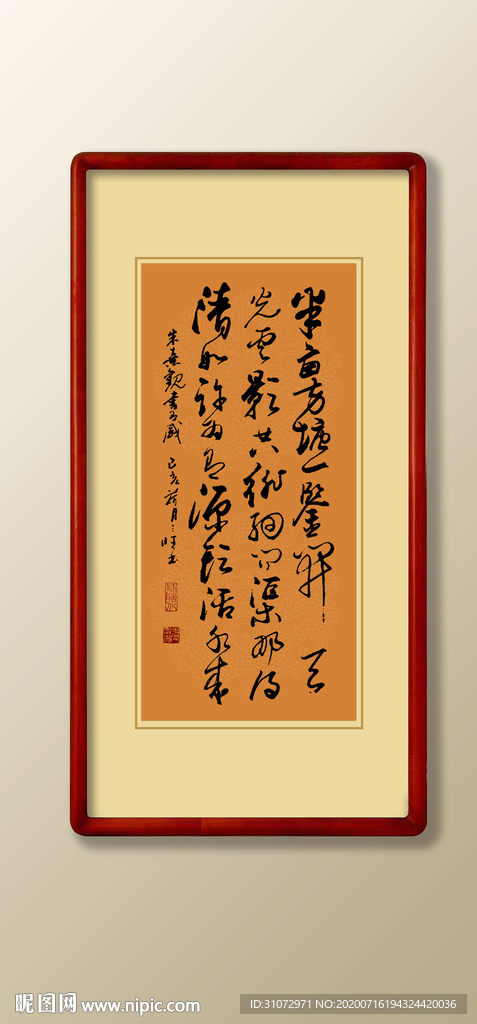 半亩方塘一鑒開天
光雲影共徘徊问渠那得
清如许为有源頭活水来
朱熹觀書有感 己亥荷月三旺书
昵图网 www.nipic.com
ID:31072971 NO:20200716194324420036